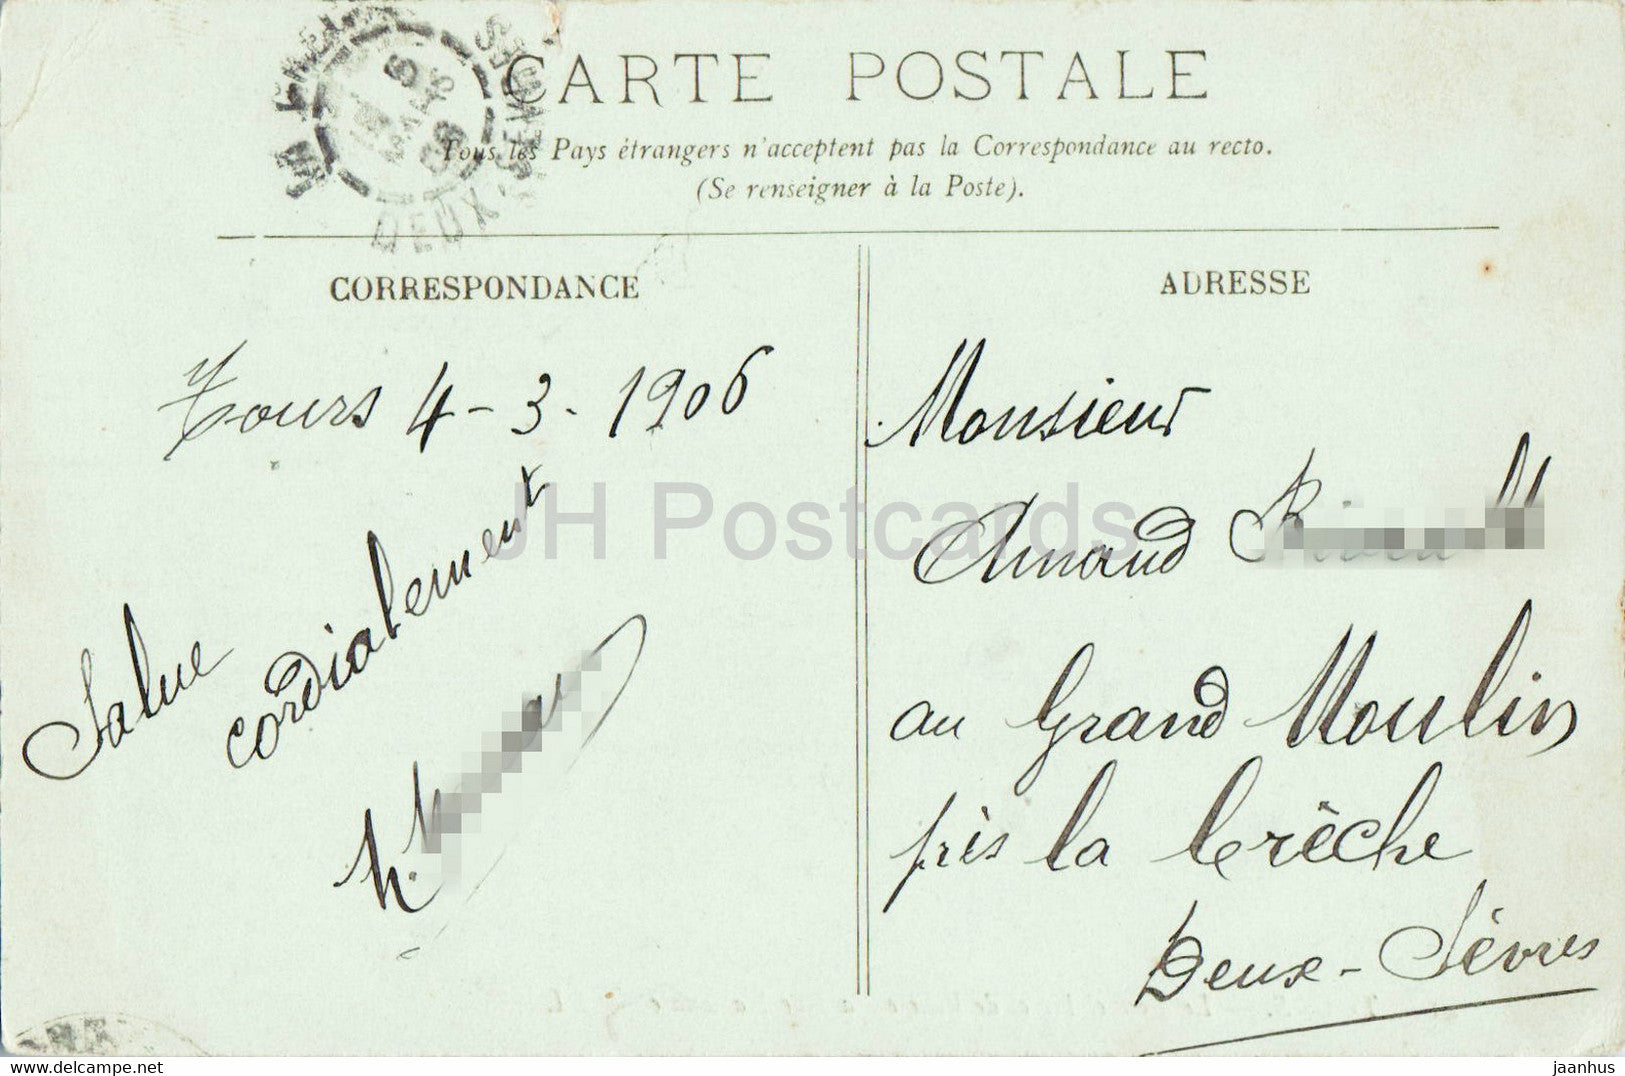 CARTE POSTALE
Tous les Pays étrangers n'acceptent pas la Correspondance au recto.
(Se renseigner à la Poste).
DEUX-SÈVRES
CORRESPONDANCE
Tours 4-3-1906
Salue
cordialement
ADRESSE
Monsieur
Amand
au Grand Moulin
près la Crèche
Deux-Sèvres
JH Postcards
www.delcampe.net
jaanhus